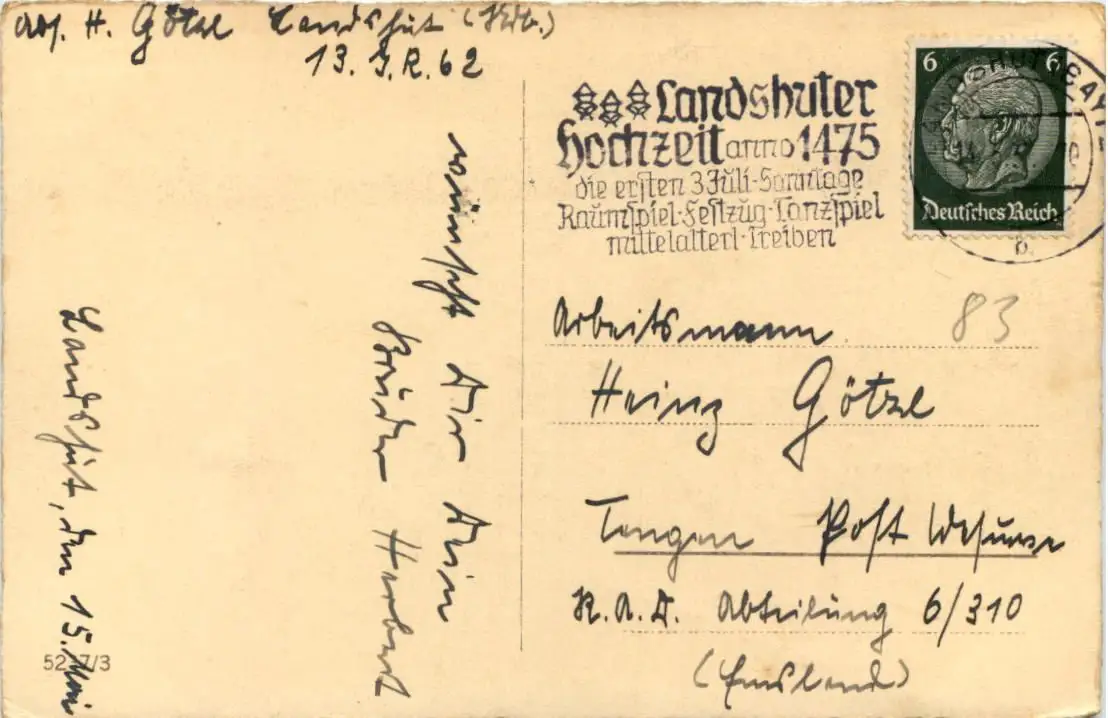 Abs. H. Götzl Landshut (Ndb.)
13. J.R. 62
Landshuter
Hochzeit anno 1475
die ersten 3 Juli-Sonntage
Raumspiel·Festzug·Tanzspiel
mittelalterl·Treiben
6 6
Deutsches Reich
b
wünscht Dir Dein
Bruder Herbert
Landshut, den 15. Mai
83
Arbeitsmann
Heinz Götzl
Post
R.A.D. Abteilung 6/310
(Emsland)
52
7/3